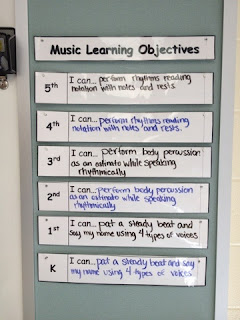 Music Learning Objectives
5th I can... perform rhythms reading
notation with notes and rests.
4th I can... perform rhythms reading
notation with notes and rests.
3rd I can... perform body percussion
as an ostinato while speaking
rhythmically
2nd I can... perform body percussion
as an ostinato while speaking
rhythmically
1st I can... pat a steady beat and
say my name using 4 types of voices
K I can... pat a steady beat and say
my name using 4 types of voices.